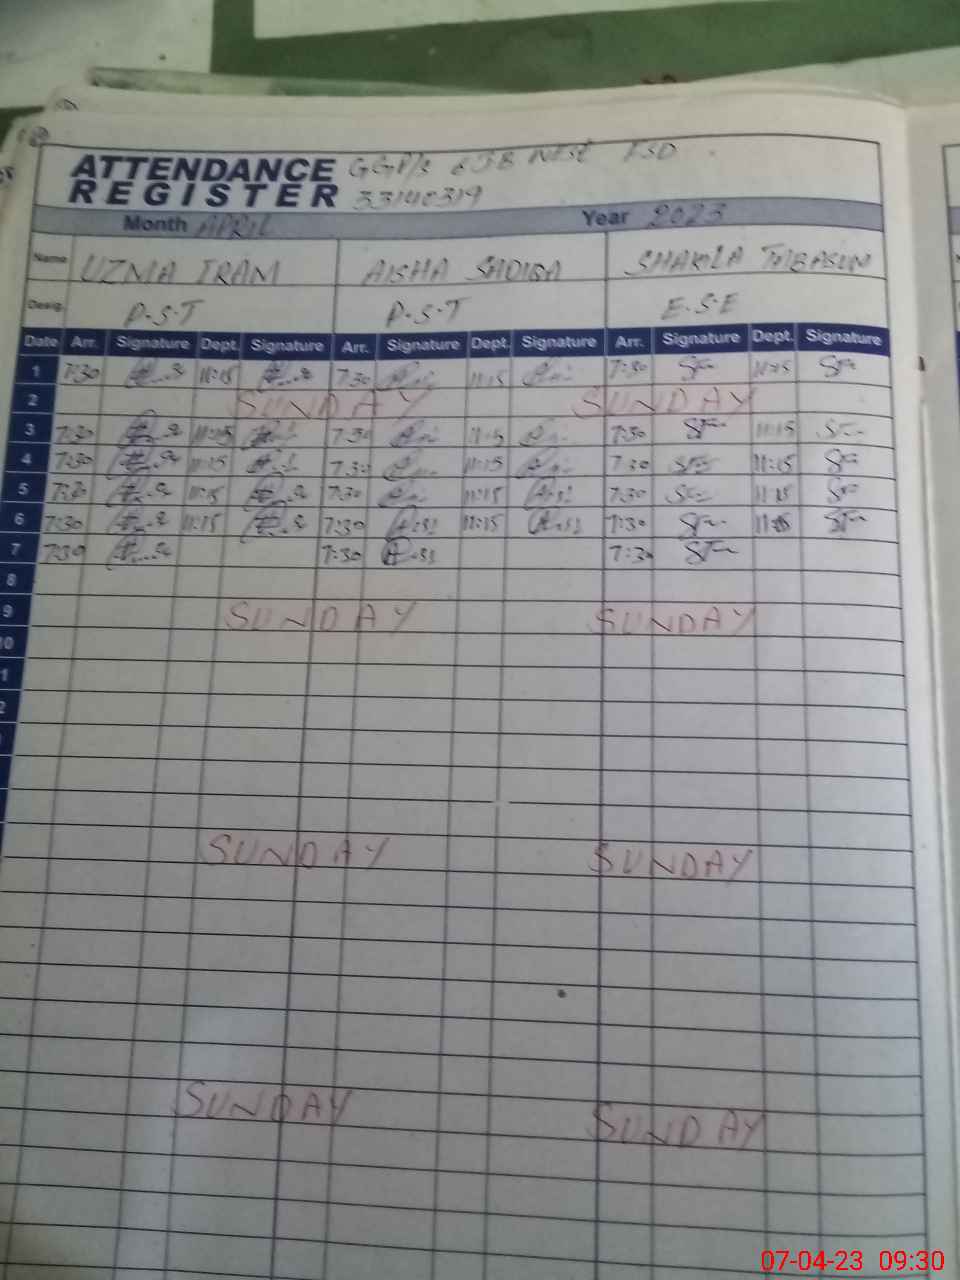 ATTENDANCE GGP/S JB West FSD
REGISTER 33140319
Month APRIL Year 2023
Name UZMA IRAM AISHA SADIQA SHAKILA TABASUM
Desig. P.S.T P.S.T E.S.E
Date Arr. Signature Dept. Signature Arr. Signature Dept. Signature Arr. Signature Dept. Signature
1 7:30 11:15 7:30 11:15 7:30 11:15
2 SUNDAY SUNDAY
3 7:30 11:15 7:30 11:15 7:30 11:15
4 7:30 11:15 7:30 11:15 7:30 11:15
5 7:30 11:15 7:30 11:15 7:30 11:15
6 7:30 11:15 7:30 11:15 7:30 11:15
7 7:30 7:30 7:30
8
9 SUNDAY SUNDAY
10
1
2
SUNDAY SUNDAY
SUNDAY SUNDAY
07-04-23 09:30